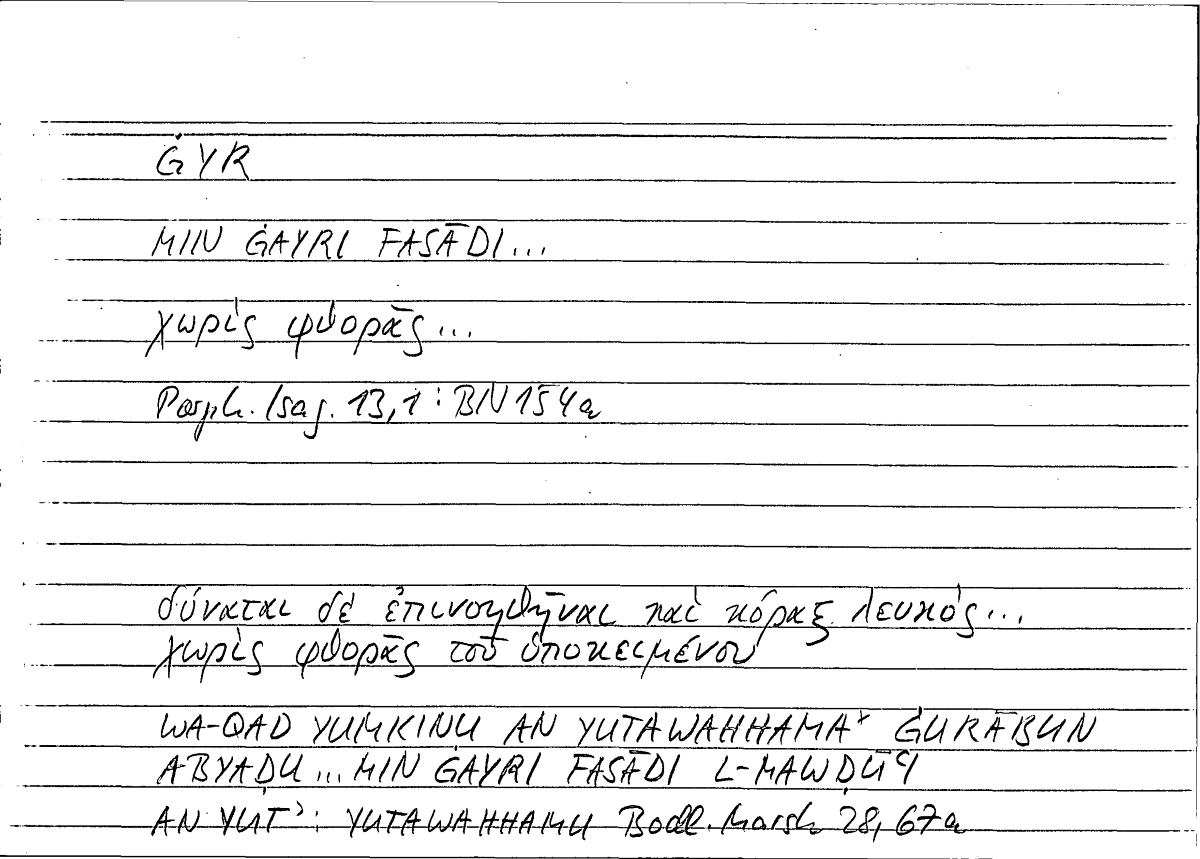 ĠYR
MIN ĠAYRI FASĀDI...
χωρὶς φθορᾶς...
Porph. Isag. 13,1: BN 154a
δύναται δὲ ἐπινοηθῆναι καὶ κόραξ λευκός...
χωρὶς φθορᾶς τοῦ ὑποκειμένου
WA-QAD YUMKINU AN YUTAWAHHAMAˣ ĠURĀBUN
ABYAḌU... MIN ĠAYRI FASĀDI L-MAWḌŪʿI
AN YUT᾿: YUTAWAHHAMU Bodl. Marsh 28, 67a